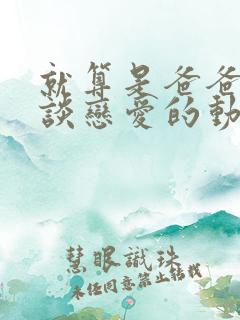 就算是爸爸
談戀愛的動
慧眼識珠
未任同意禁止轉載